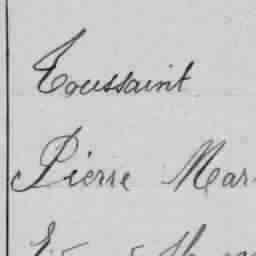 Toussaint
Pierre Mar